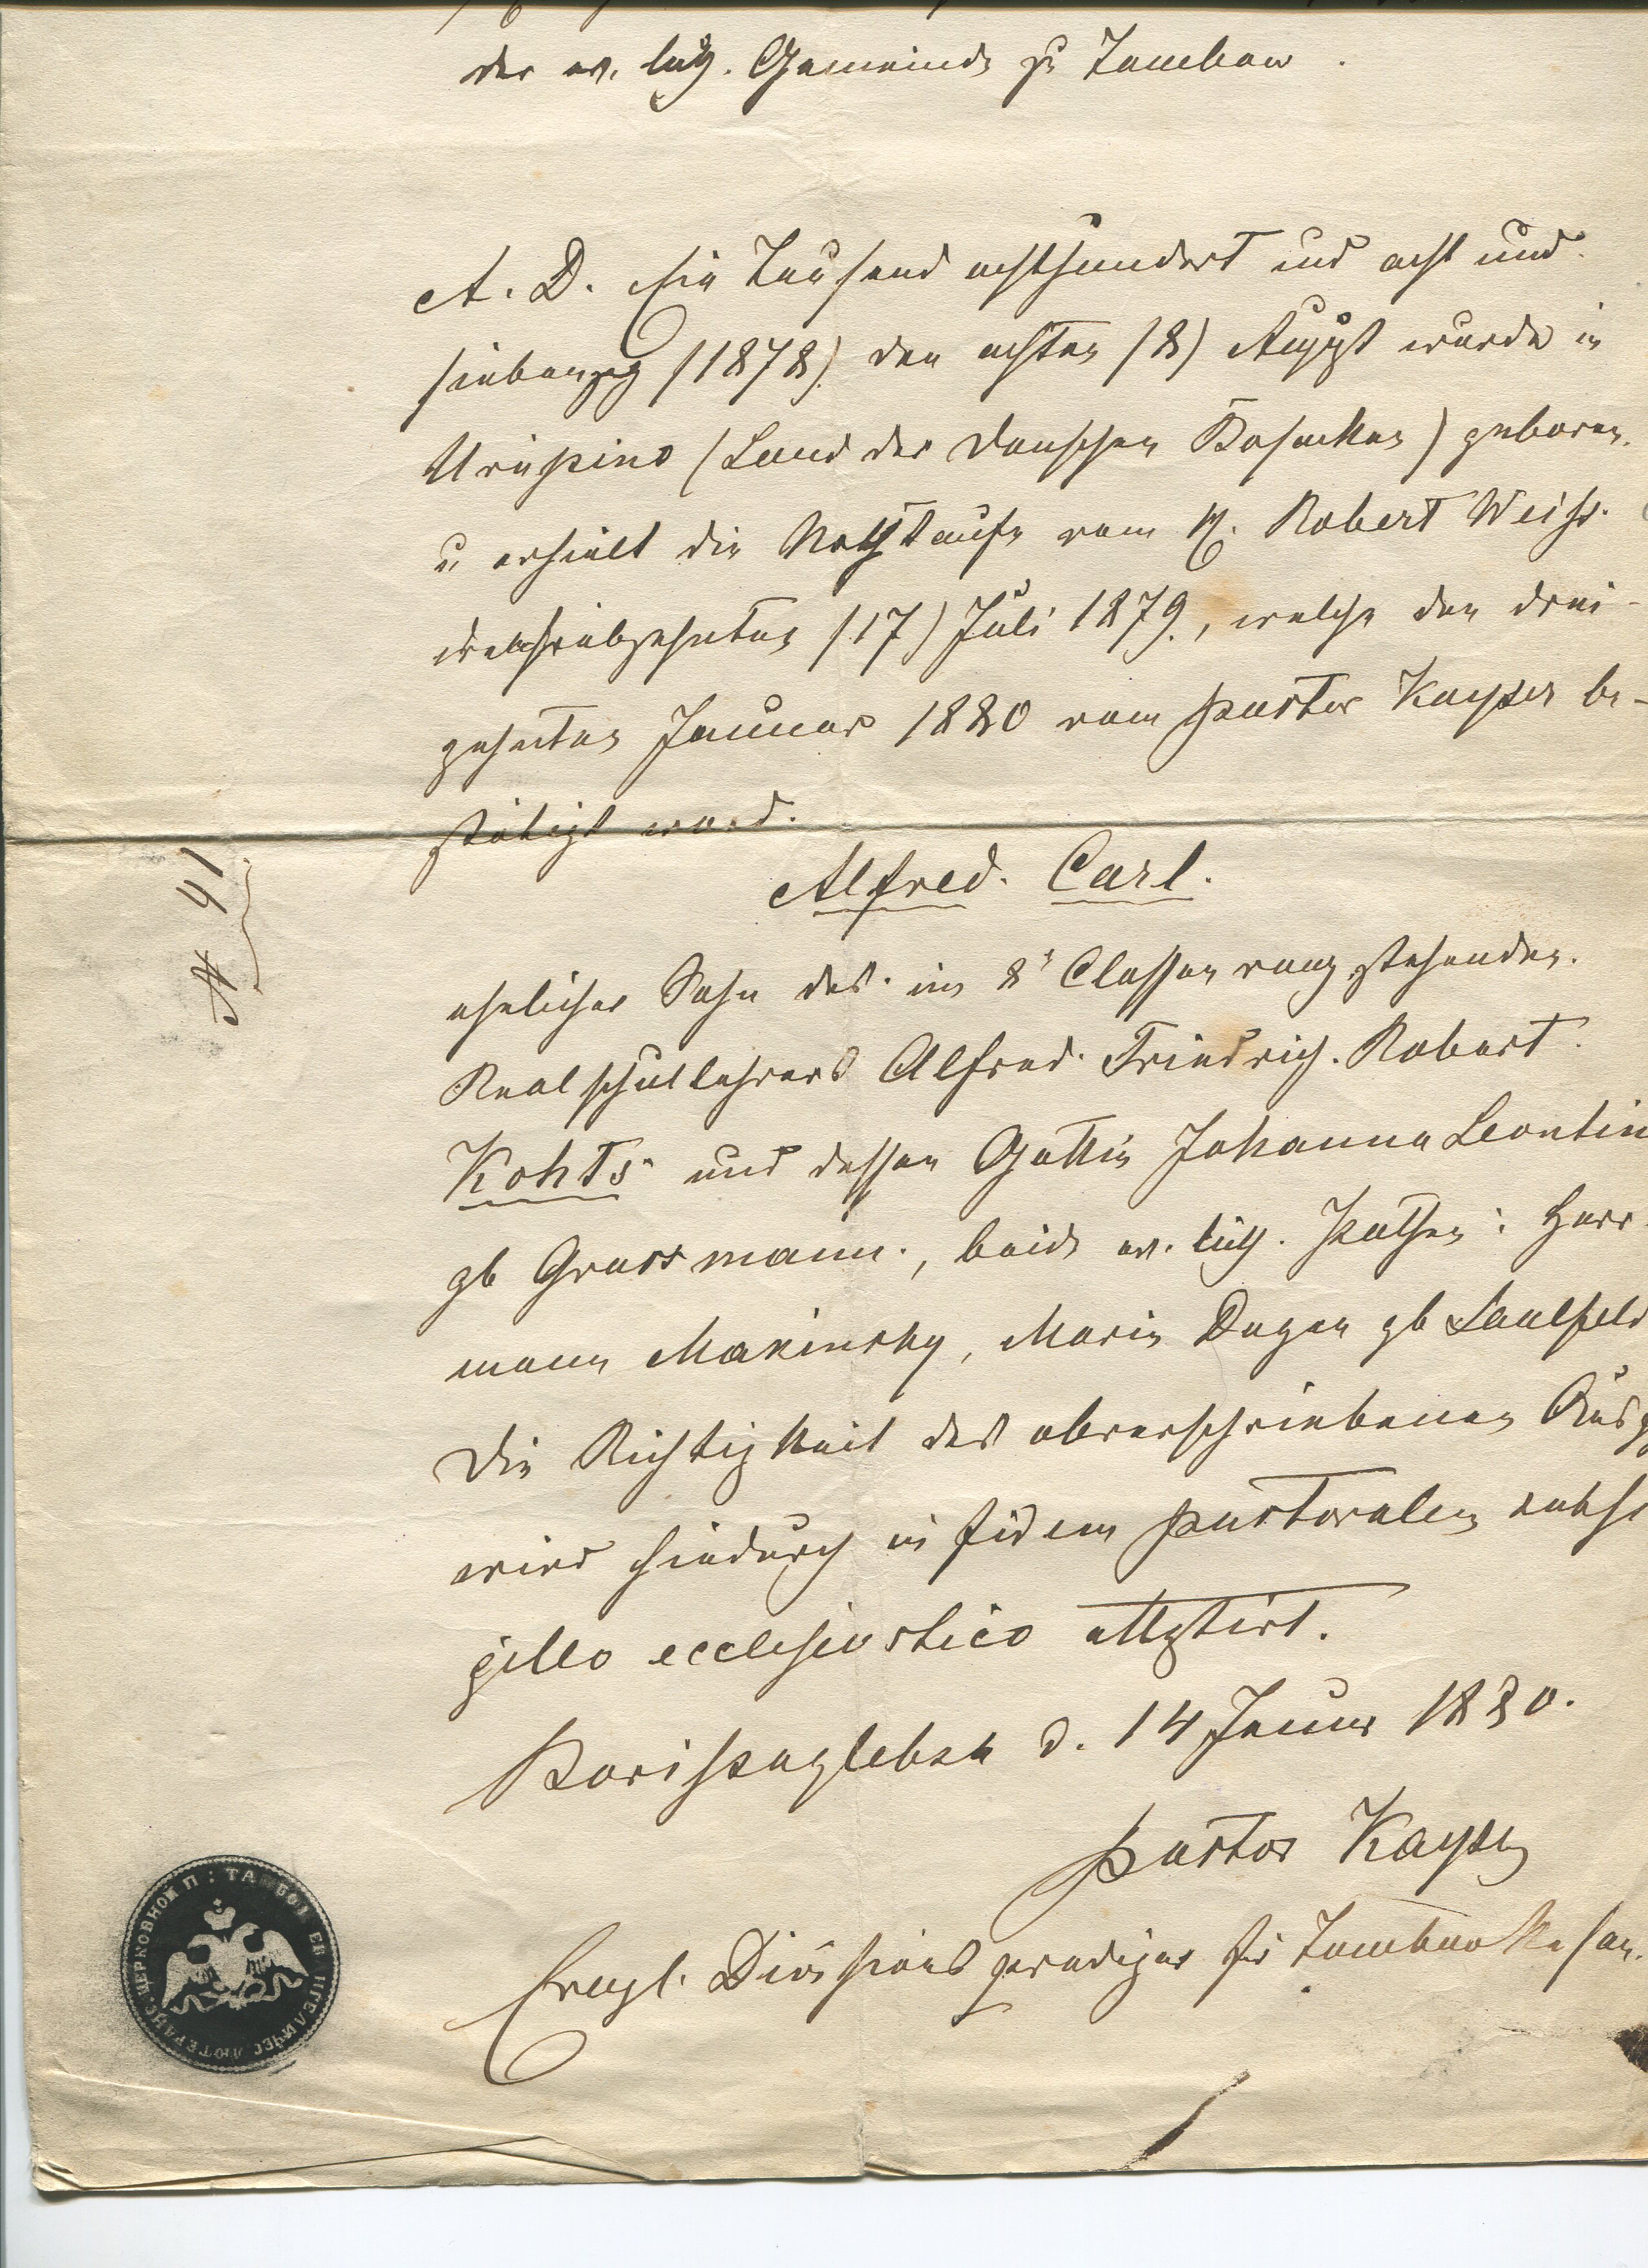 der ev. luth. Gemeinde zu Tambow.
A. D. Ein Tausend achthundert und acht und
siebenzig (1878) den achten (8) August wurde in
Urüpino (Land der Donschen Kosacken) geboren
u erhielt die Nothtaufe vom H. Robert Weiss.
d. siebzehnten (17) Juli 1879, welche den drei-
zehnten Januar 1880 vom Pastor Kayser be-
stätigt ward.
Alfred. Carl.
ehelicher Sohn des im 8t Classen rang stehenden
Realschullehrers Alfred Friedrich Robert
Kohts und dessen Gattin Johanna Leontin
gb Grassmann, beide ev. luth. Pathen: Herr-
mann Makinsky, Marie Dugen gb Saulfeld
Die Richtigkeit des obverschriebenen Ausz
wird hiedurch in fidem pastoralem subsi
gillo ecclesiastico attestirt.
Borissoglebsk d. 14 Januar 1880.
Pastor Kayser
Evangl. Divisionsprediger für Tambow Rasan.
№ 41
ТАМБОВ ЕВАНГЕЛИЧЕС ЛЮТЕРАНС. ЦЕРКОВНОЙ П: